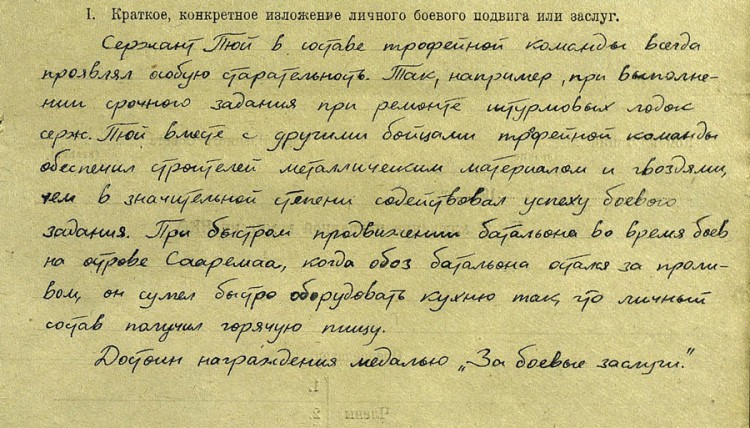 I. Краткое, конкретное изложение личного боевого подвига или заслуг.
Сержант Пюй в составе трофейной команды всегда
проявлял особую старательность. Так, например, при выполне-
нии срочного задания при ремонте штурмовых лодок
серж. Пюй вместе с другими бойцами трофейной команды
обеспечил строителей металлическим материалом и гвоздями,
чем в значительной степени содействовал успеху боевого
задания. При быстром продвижении батальона во время боев
на острове Сааремаа, когда обоз батальона остался за проли-
вом, он сумел быстро оборудовать кухню так, что личный
состав получил горячую пищу.
Достоин награждения медалью „За боевые заслуги."
1.
Члены 2.